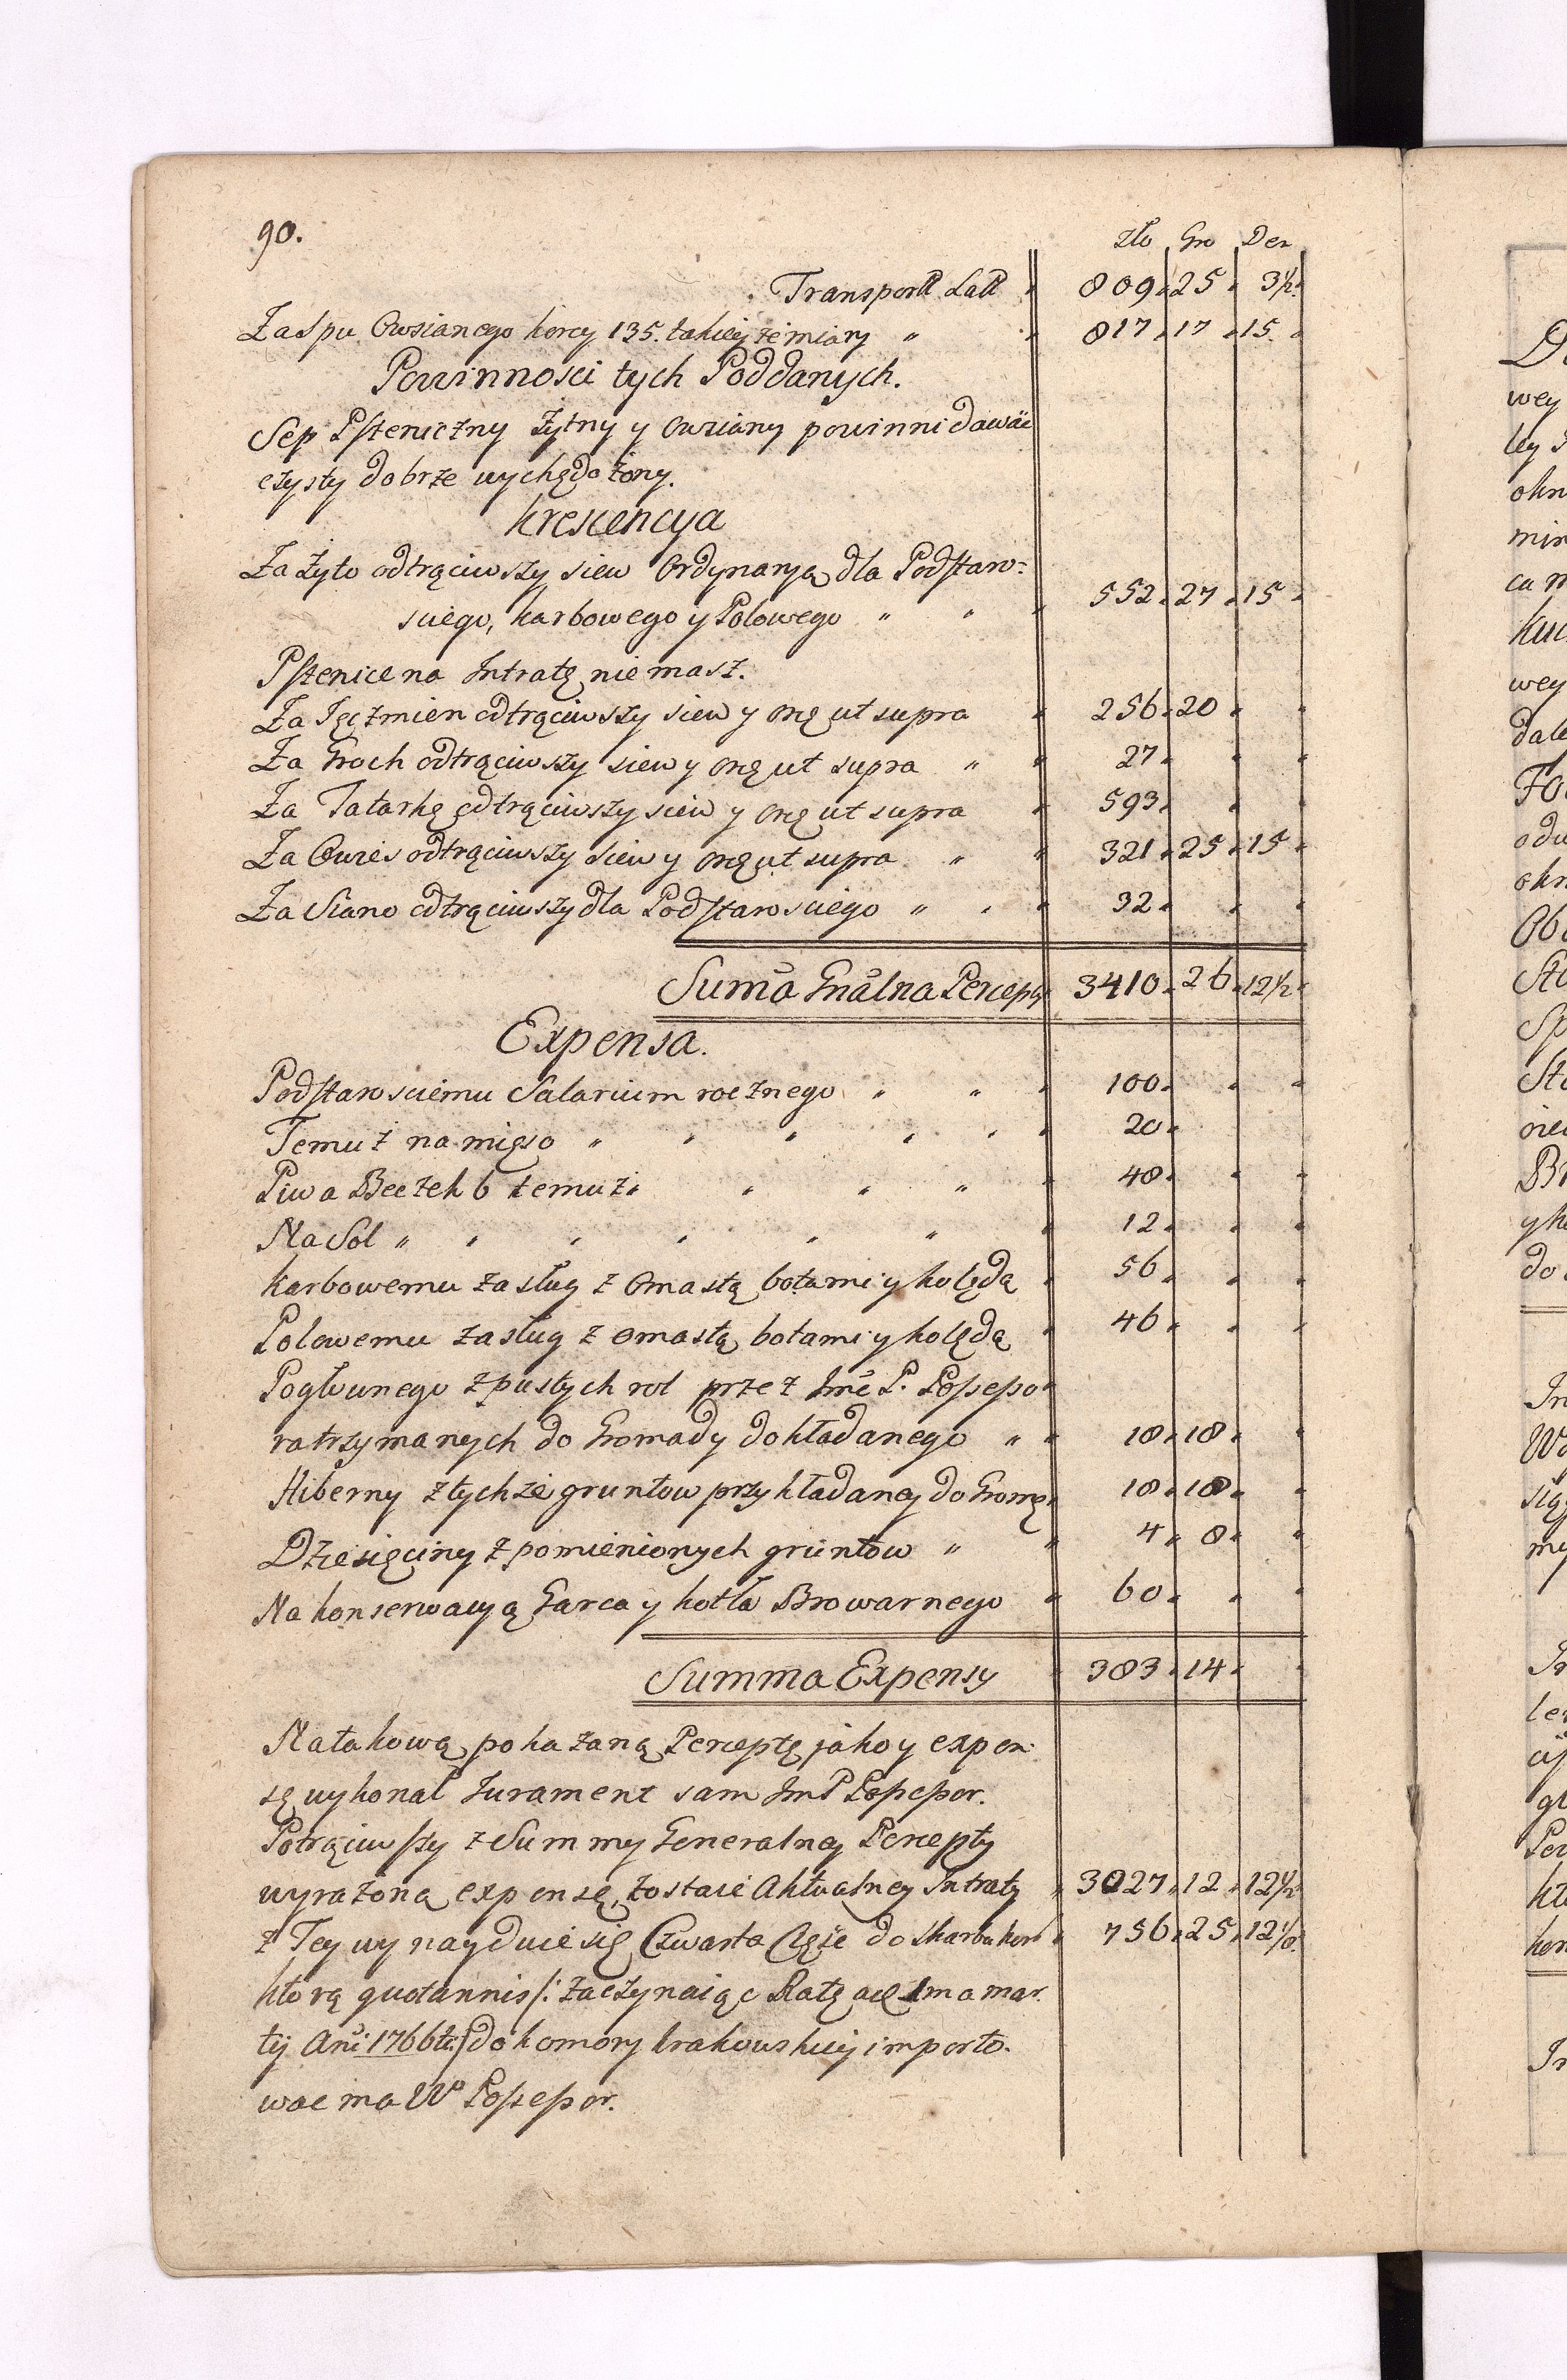 90.
Zło Gro Den
Transportt Latt 809 25 3½
Za Spu Owsianego korcy 135. takieyże miary 817 17 15
Powinnosci tych Poddanych.
Sep Pszeniczny Żytny y Owsiany powinni dawać
czysty dobrze wychędożony.
Krescencya
Za Żyto odtrąciwszy siew Ordynaryą dla Podstaro=
sciego, karbowego y Polowego 552 27 15
Pszenice na Intratę nie masz.
Za Ięczmien odtrąciwszy siew y Orę ut supra 256 20
Za Groch odtrąciwszy siew y Orę ut supra 27
Za Tatarkę odtrąciwszy siew y Orę ut supra 593
Za Owies odtrąciwszy siew y Orę ut supra 321 25 15
Za Siano odtrąciwszy dla Podstarosciego 32
Suma Gnalna Percepty 3410 26 12½
Expensa.
Podstarosciemu Salarium rocznego 100
Temuż na mięso 20
Piwa Beczek 6 temuż 48
Na Sol 12
karbowemu zasług z Omastą botami y kolędą 56
Polowemu zasług z omastą botami y kolędą 46
Pogłownego z pustych rol przez Jmć P. Possesso
ra trzymanych do Gromady dokładanego 18 18
Hiberny z tychże gruntow przykładaney do Gromę 18 18
Dziesięciny z pomienionych gruntow 4 8
Na konserwacyą Garca y kotła Browarnego 60
Summa Expensy 383 14
Na takową pokazaną Perceptę jako y expen:
sę wykonał Jurament sam Jm P Possessor.
Potrąciwszy z Summy Generalney Percepty
wyrażoną expensę, zostaie Aktualney Intraty 3027 12 12½
z Tey wynayduie się Czwarta Częsc do Skarbu kor 756 25 12⅛
ktorą quotannis /: zaczynaiąc Ratę a 1ma mar.
tij Ani 1766ti :/ do komory krakowskiey importo.
wac ma W Possessor.